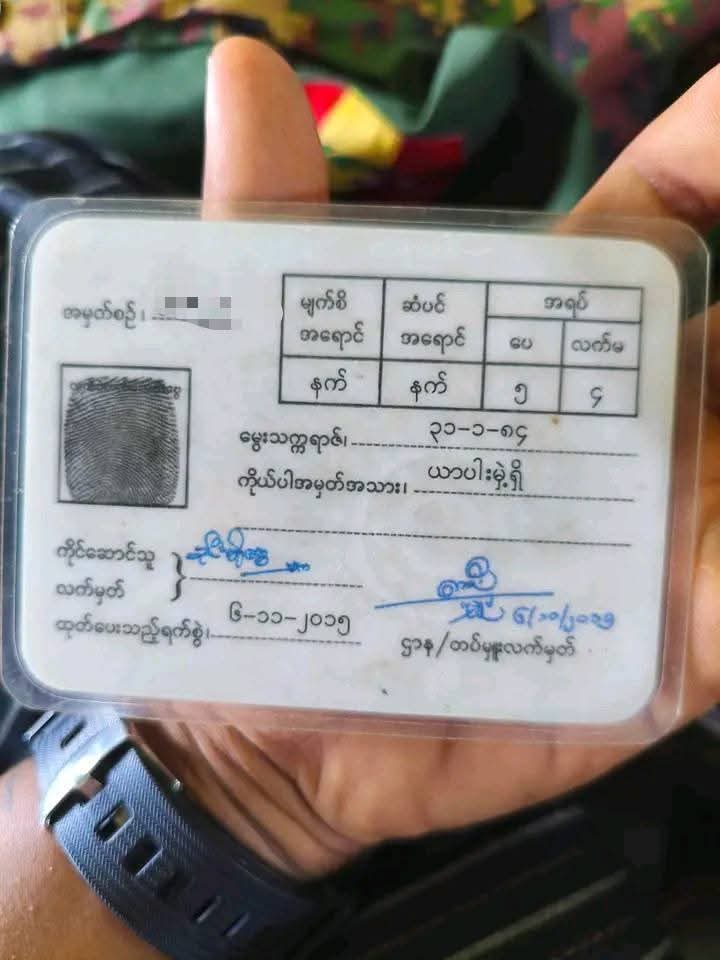 အမှတ်စဉ်၊
မျက်စိ အရောင် ဆံပင် အရောင် အရပ်
ပေ လက်မ
နက် နက် ၅ ၄
မွေးသက္ကရာဇ်၊ ၃၁-၁-၈၄
ကိုယ်ပါအမှတ်အသား၊ ယာပါးမှဲ့ရှိ
ကိုင်ဆောင်သူ
လက်မှတ်
ထုတ်ပေးသည့်ရက်စွဲ၊ ၆-၁၁-၂၀၁၅
ဌာန/တပ်မှူးလက်မှတ်